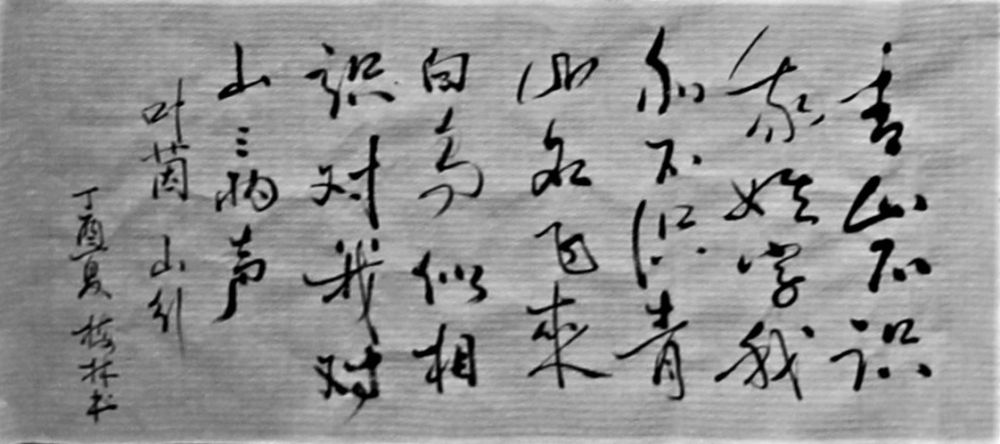 青山不识
我姓字我
亦不识青
山名飞来
白鸟似相
识对我对
山三两声
叶茵 山行
丁酉夏 梅林书